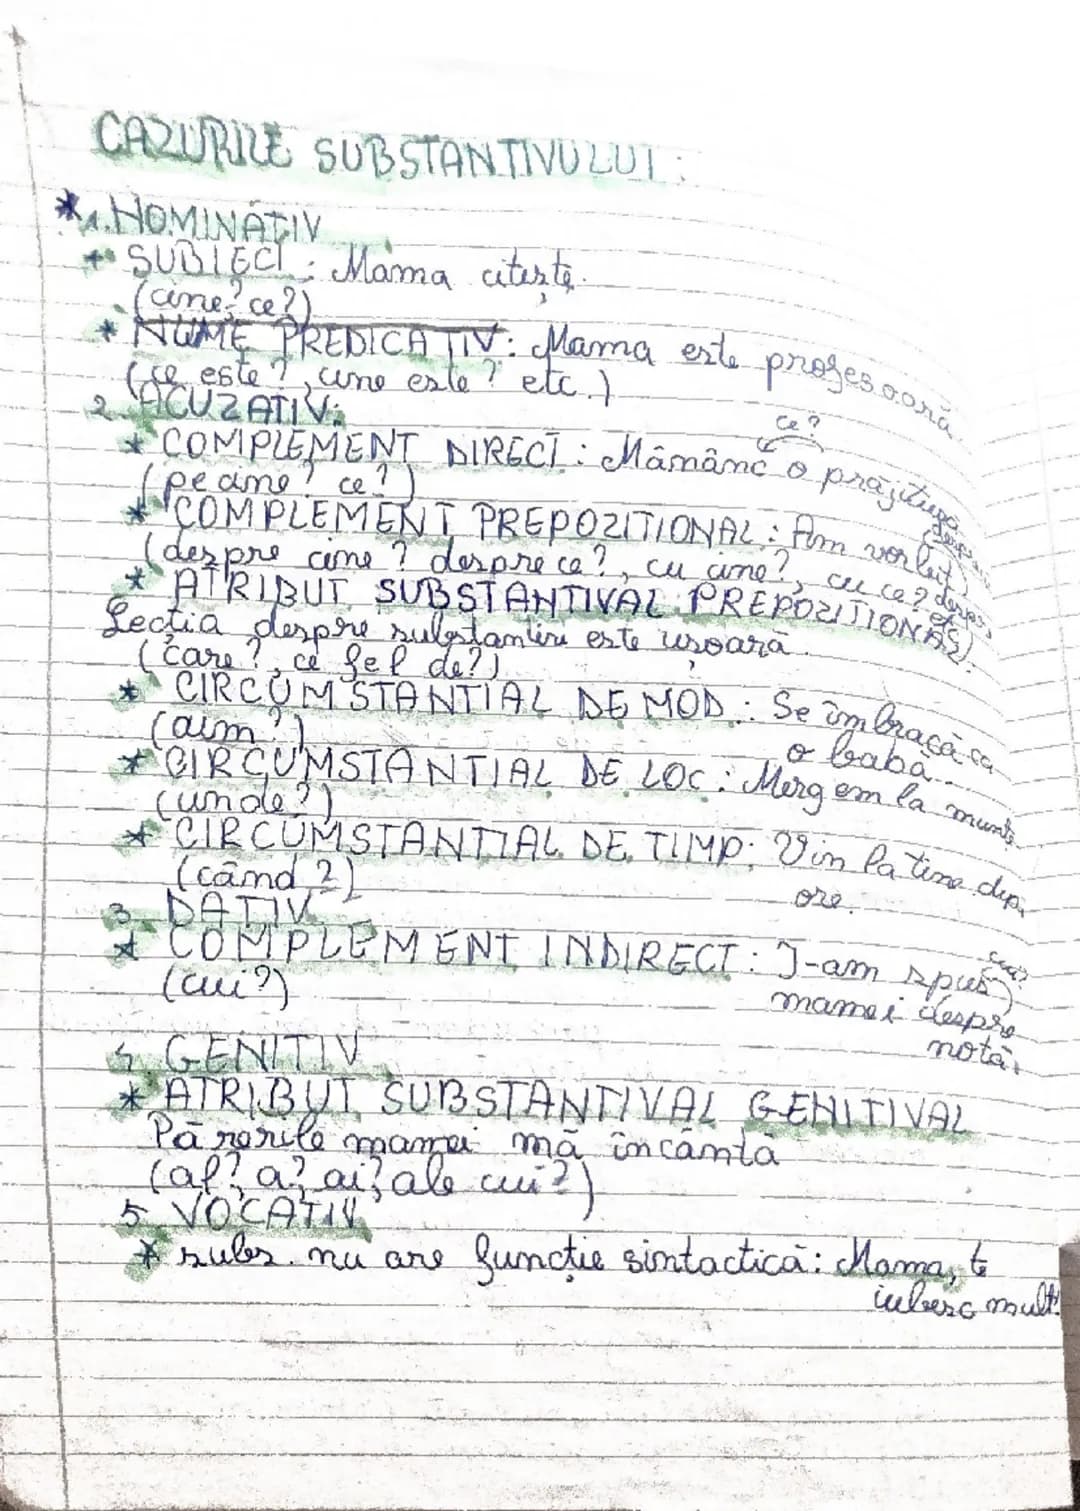 CAZURILE SUBSTANTIVULUI:
* 1. NOMINATIV
* SUBIECT: Mama citește.
(cine? ce?)
* NUME PREDICATIV: Mama este profesoară
(ce este?, cine este? etc.)
2. ACUZATIV:
ce?
* COMPLEMENT DIRECT: Mănânc o prăjitură
(pe cine? ce?)
* COMPLEMENT PREPOZITIONAL: Am vorbit
(despre cine? despre ce?, cu cine?, cu ce? etc.)
* ATRIBUT SUBSTANTIVAL PREPOZITIONAL
Lecția despre substantive este ușoară.
(care?, ce fel de?)
* CIRCUMSTANTIAL DE MOD: Se îmbracă ca
o babă.
(cum?)
* CIRCUMSTANTIAL DE LOC: Mergem la munte
(unde?)
* CIRCUMSTANTIAL DE TIMP: Vin la tine după
ore.
(când?)
3. DATIV
cui?
* COMPLEMENT INDIRECT: I-am spus
(cui?)
mamei despre
notă.
4. GENITIV
* ATRIBUT SUBSTANTIVAL GENITIVAL
Părerile mamei mă încântă
(al? a? ai? ale cui?)
5. VOCATIV
* subs. nu are funcție sintactică: Mama, te
iubesc mult!